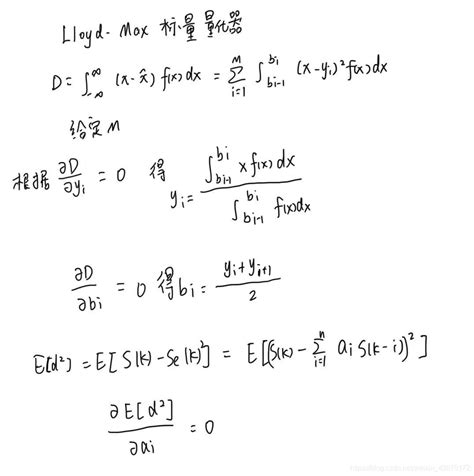 Lloyd-Max 标量量化器
D = ∫_{-∞}^{∞} (x-x̂) f(x)dx = ∑_{i=1}^{M} ∫_{b_{i-1}}^{b_i} (x-y_i)² f(x)dx
给定M
根据 ∂D/∂y_i = 0 得 y_i = ∫_{b_{i-1}}^{b_i} x f(x)dx / ∫_{b_{i-1}}^{b_i} f(x)dx
∂D/∂b_i = 0 得 b_i = (y_i+y_{i+1})/2
E[d²] = E[S(k)-Se(k)²] = E[(S(k)-∑_{i=1}^{n} a_i S(k-i))²]
∂E[d²]/∂a_i = 0